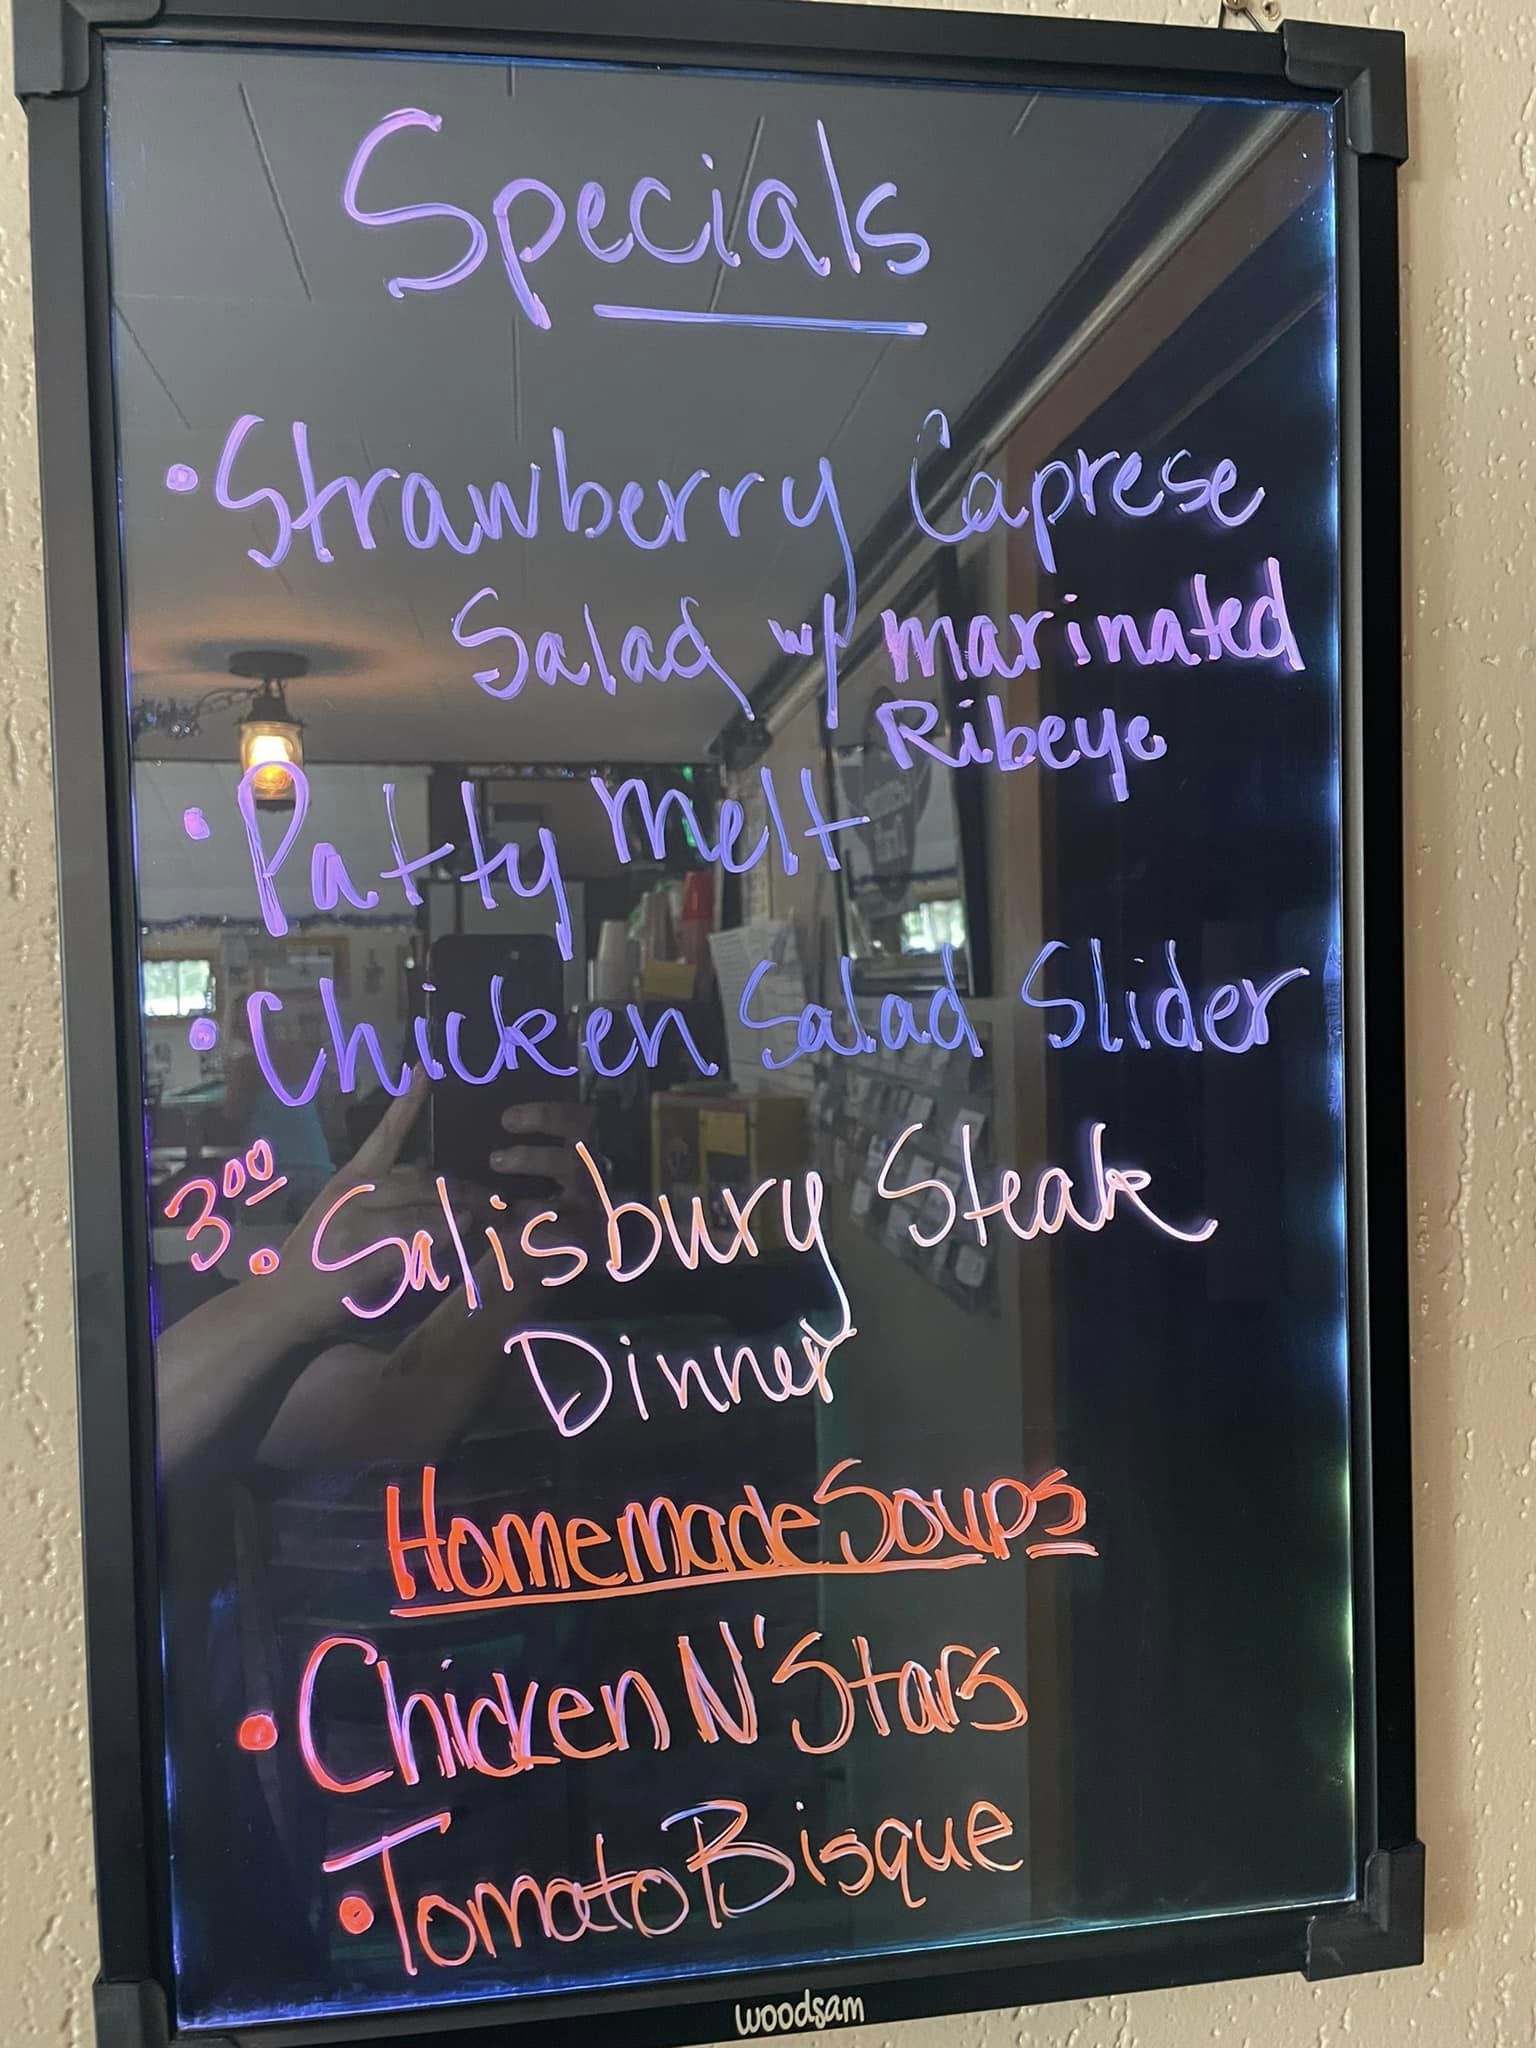 Specials
• Strawberry Caprese
Salad w/ marinated
Ribeye
• Patty melt
• Chicken Salad Slider
3.00 • Salisbury Steak
Dinner
Homemade Soups
• Chicken N' Stars
• Tomato Bisque
woodsam